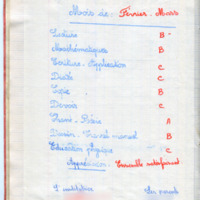 Mois de : Février - Mars
Lecture B
Mathématiques B
Ecriture - Application C
Dictée C
Copie B
Devoirs C
Chant - Récit. A
Dessin - Travail manuel B
Education physique C
Appréciation : Travaille satisfaisant
L'institutrice Les parents